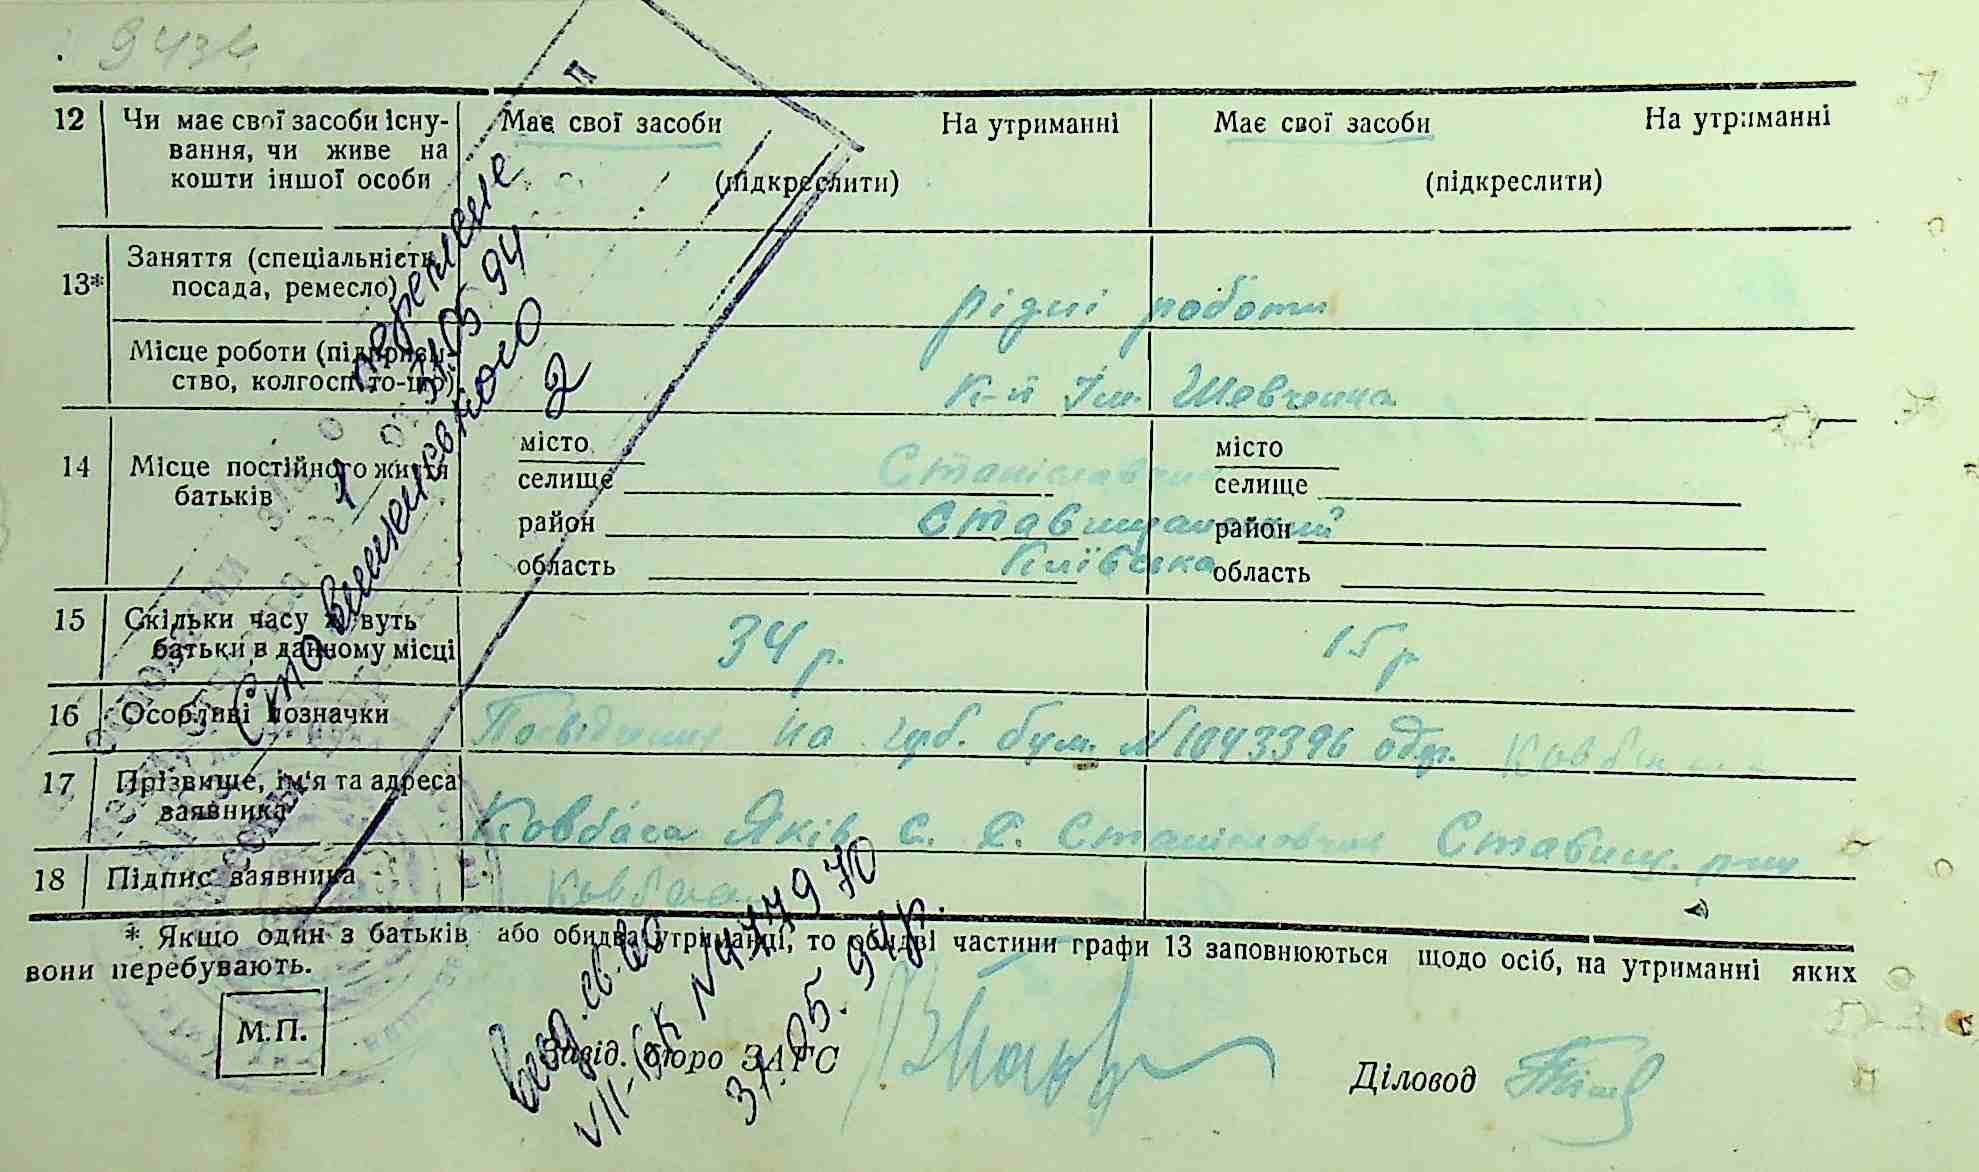 943
12 Чи має свої засоби існу- Має свої засоби На утриманні Має свої засоби На утриманні
вання, чи живе на
кошти іншої особи (підкреслити) (підкреслити)
13* Заняття (спеціальність,
посада, ремесло) різні роботи
Місце роботи (підприєм-
ство, колгосп то-що) К-п Ім. Шевченка
14 Місце постійного життя
батьків
місто місто
селище Станіславчик селище
район Ставищанський район
область Київська область
15 Скільки часу живуть
батьки в данному місці 34 р. 15 р
16 Особливі позначки на губ. бум. №1043396 одер. Ковбаса
17 Прізвище, ім'я та адреса
заявника Ковбаса Яків С. С. Станіславчик Ставищ. р-ну
18 Підпис заявника Ковбаса
* Якщо один з батьків або обидва утриманці, то обидві частини графи 13 заповнюються щодо осіб, на утриманні яких
вони перебувають.
М.П.
Завід. бюро ЗАГС
Діловод
31 05 94
Ставищенского
2
выд. св-во
VII-БК №447970
31.05.94р.